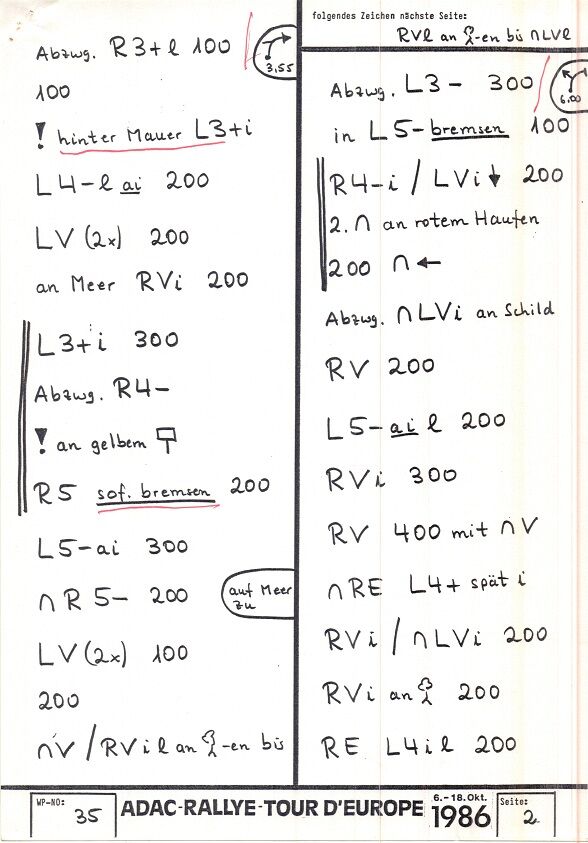 Abzw. R3+l 100
3,55
100
! hinter Mauer L3+i
L4-l ai 200
LV (2x) 200
an Meer RVi 200
L3+i 300
Abzw. R4-
! an gelbem
R5 sof. bremsen 200
L5-ai 300
∩ R 5- 200
auf Meer
zu
LV (2x) 100
200
∩V / RVil an -en bis
folgendes Zeichen nächste Seite:
RVl an -en bis ∩LVl
Abzw. L3- 300
6.00
in L5-bremsen 100
R4-i / LVi↓ 200
2. ∩ an rotem Haufen
200 ∩←
Abzw. ∩LVi an Schild
RV 200
L5-ai l 200
RVi 300
RV 400 mit ∩V
∩RE L4+ spät i
RVi / ∩LVi 200
RVi an 200
RE L4il 200
WP-NO: 35
ADAC-RALLYE-TOUR D'EUROPE
6.-18. Okt.
1986
Seite: 2